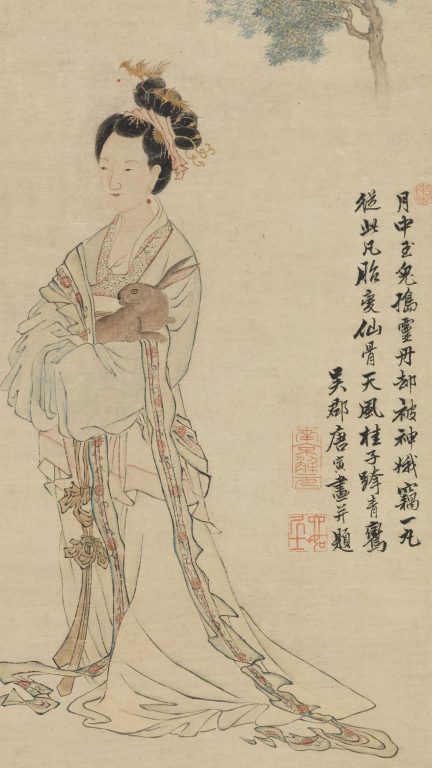 月中玉兔搗靈丹却被神娥竊一丸
從此凡胎變仙骨天風桂子跨青鸞
吳郡唐寅畫并題
南京解元
六如居士